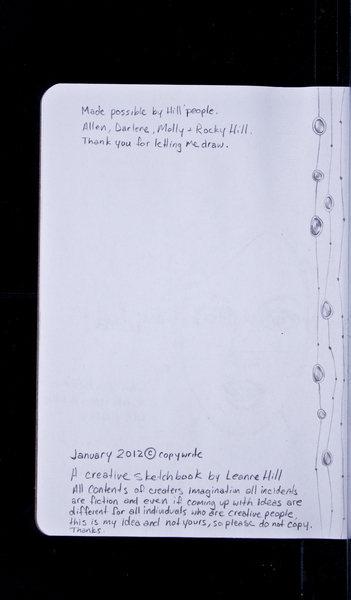 Made possible by Hill people.
Allen, Darlene, Molly + Rocky Hill.
Thank you for letting me draw.
January 2012 © copywrite
A creative sketchbook by Leanne Hill
All contents of creaters imagination all incidents
are fiction and even if coming up with Ideas are
different for all individuals who are creative people,
this is my Idea and not yours, so please do not copy.
Thanks.